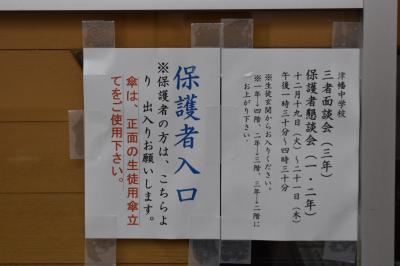 津幡中学校
三者面談会（三年）
保護者懇談会（一・二年）
十二月十九日（火）～二十一日（木）
午後一時三十分～四時三十分
※生徒玄関からお入りください。
※一年→四階、二年→三階、三年→二階に
お上がり下さい。
保護者入口
※保護者の方は、こちらよ
り　出入りお願いします。
傘は、正面の生徒用傘立
てをご使用下さい。